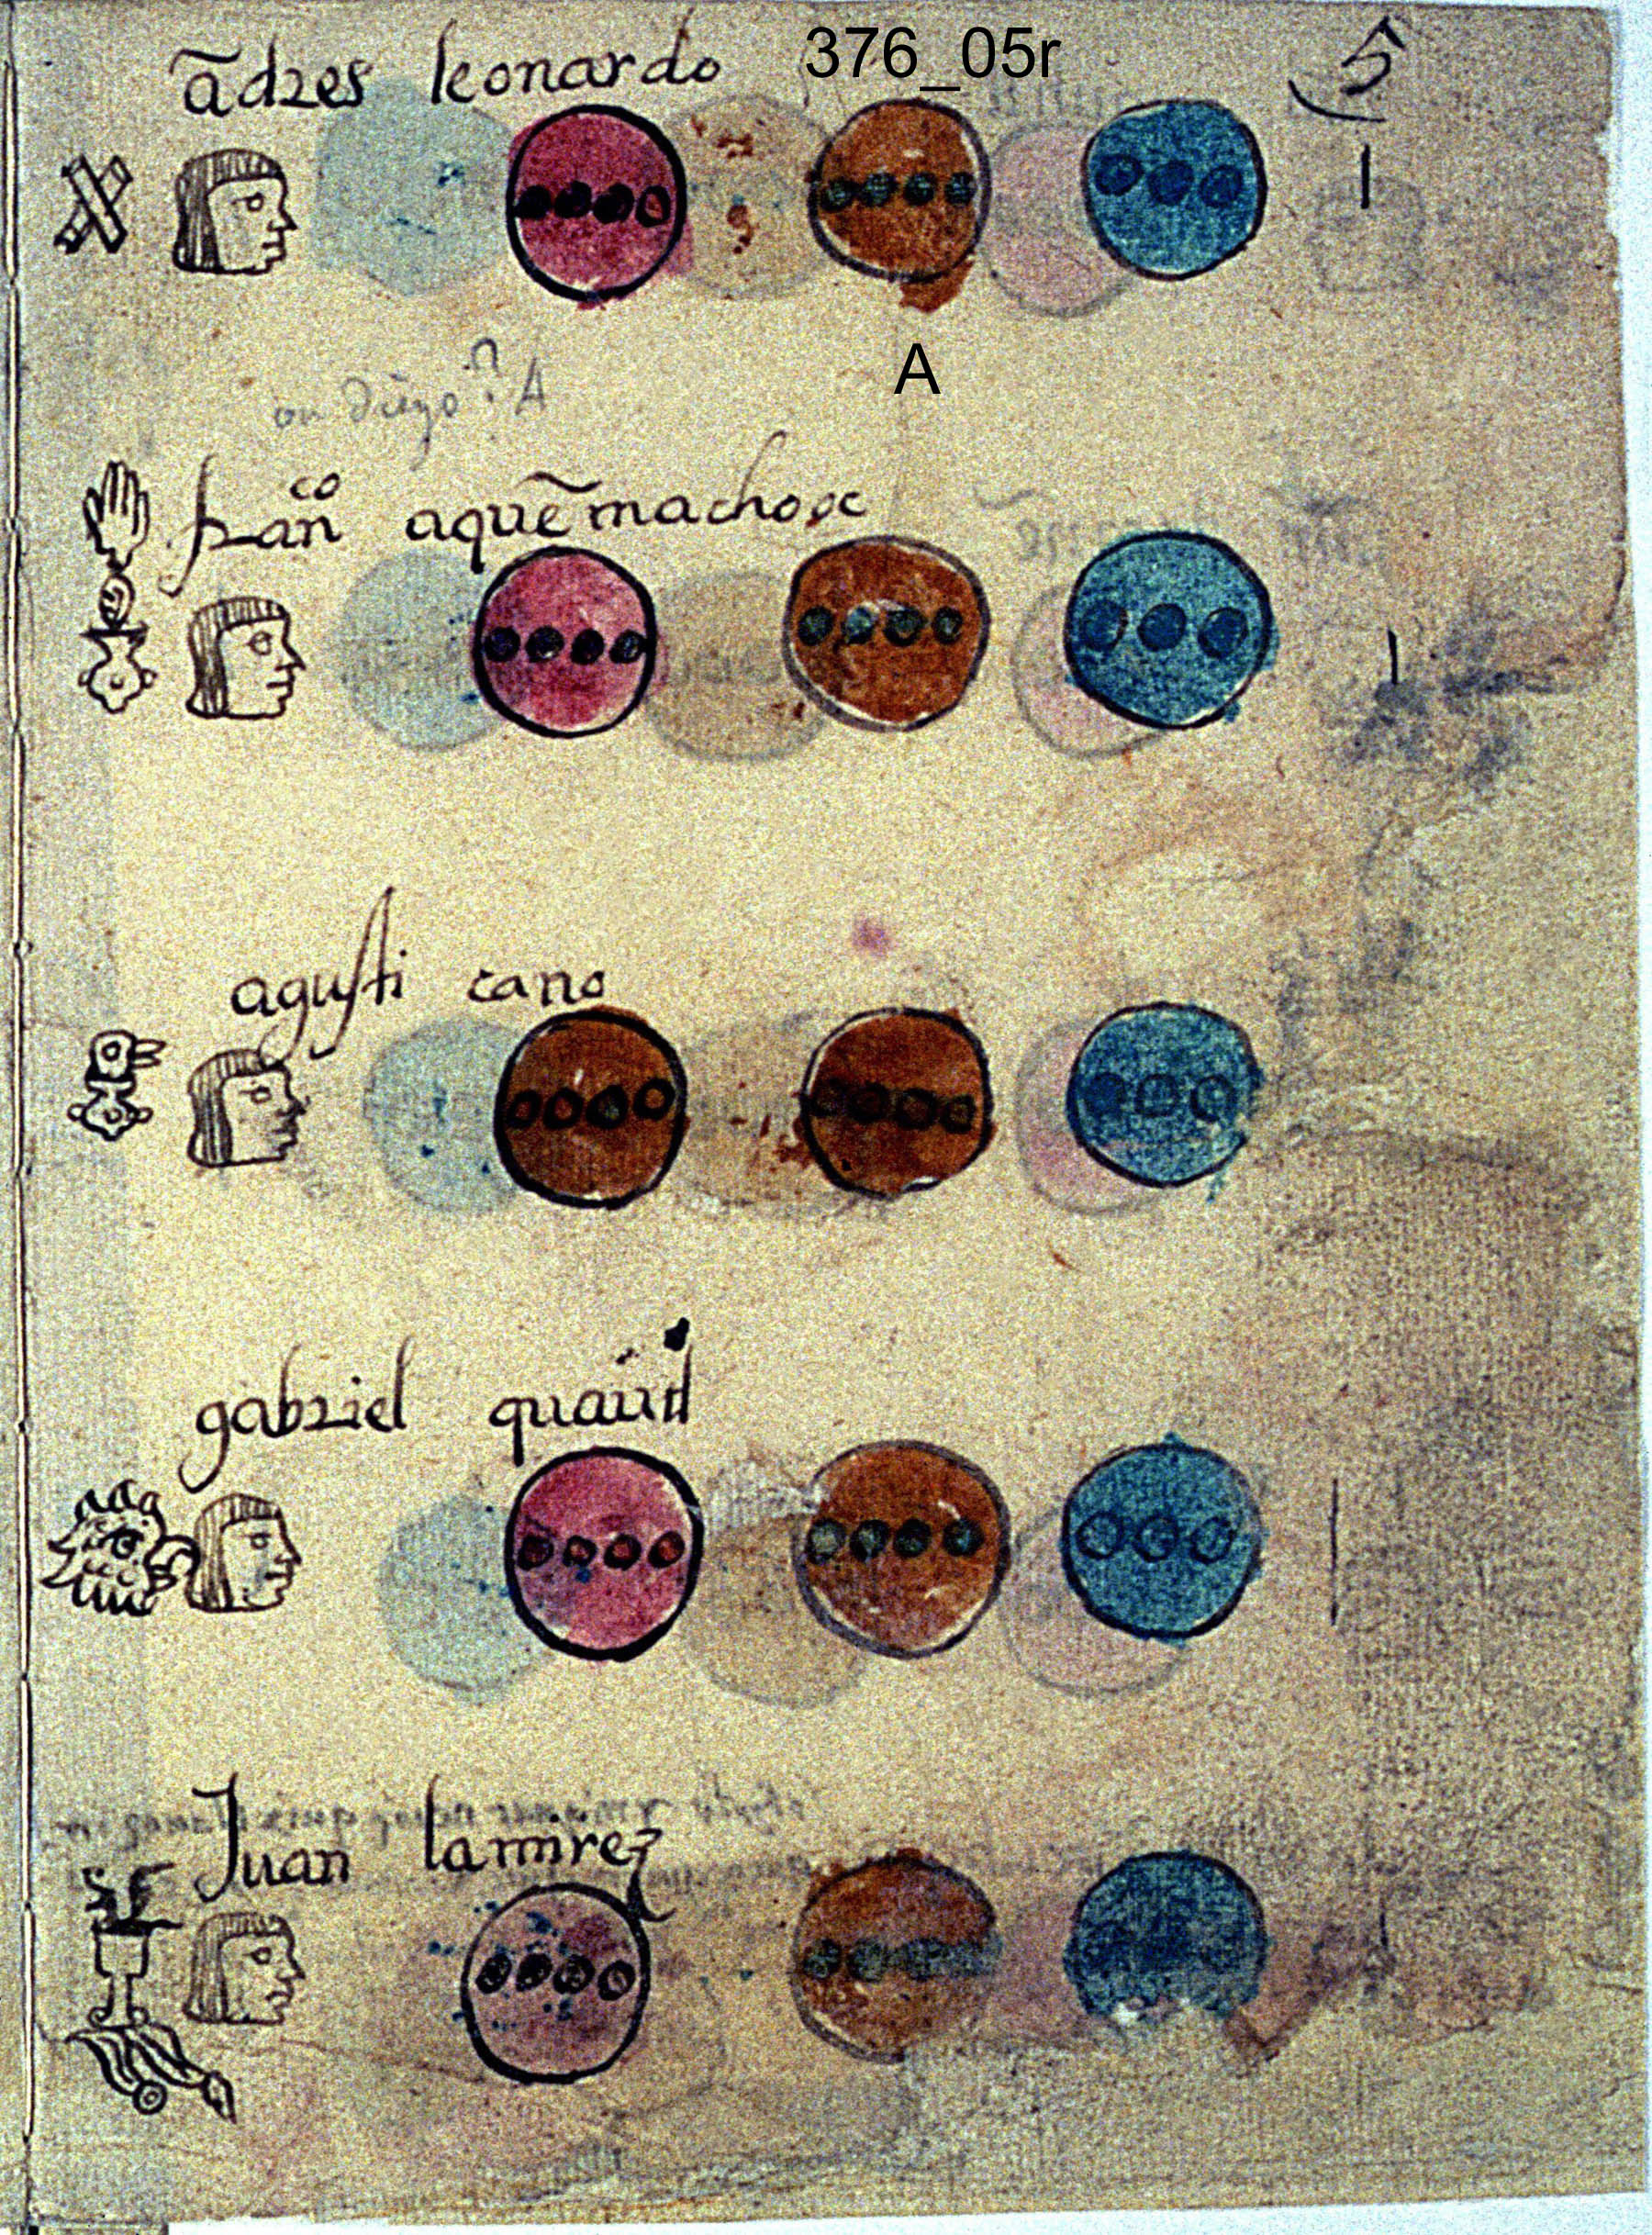 ādres leonardo 376_05r 5
A
ou diego? A
franco aquēmachoc
agusti cano
gabriel quaūtl
Juan lamirez